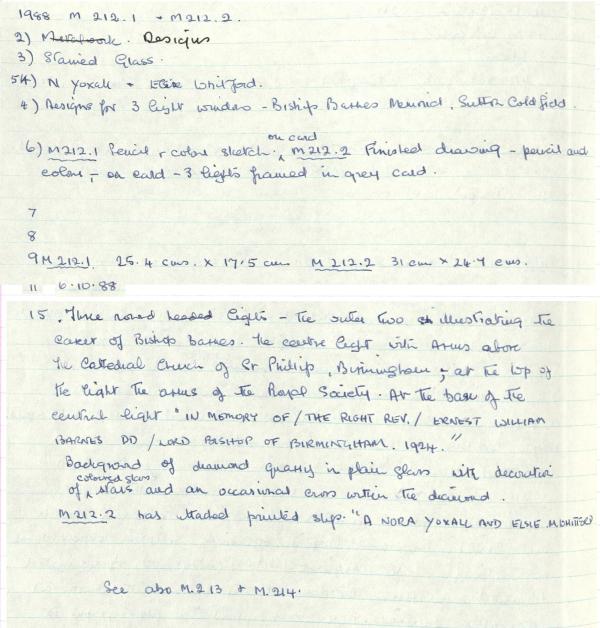 1988 M 212.1 + M212.2.
2) Metalwork. Designs
3) Stained Glass.
5/4) N Yoxall + Elsie Whitford.
4) Designs for 3 light window - Bishop Barnes Memorial, Sutton Coldfield.
6) M212.1 Pencil & colour sketch. on card M212.2 Finished drawing - pencil and
colour - on card - 3 lights framed in grey card.
7
8
9 M 212.1 25.4 cms. x 17.5 cms M 212.2 31 cm x 24.7 cms.
11 6.10.88
15. Three round headed lights - the outer two illustrating the
career of Bishop Barnes. The centre light with Arms above
the Cathedral Church of St Philip, Birmingham; at the top of
the light the arms of the Royal Society. At the base of the
central light "IN MEMORY OF / THE RIGHT REV. / ERNEST WILLIAM
BARNES DD / LORD BISHOP OF BIRMINGHAM. 1924."
Background of diamond quarry in plain glass with decoration
of coloured glass stars and an occasional cross within the diamond.
M212.2 has attached printed slip. "A NORA YOXALL AND ELSIE M. WHITFORD
See also M.213 + M.214.